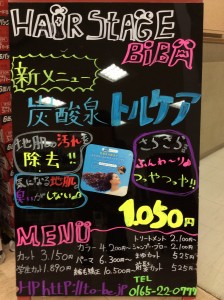 HAIR STAGE
BiBA
新メニュー
炭酸泉 トルケア
地肌の汚れを
除去!!
気になる地肌の
臭いがしない
さらさら
ふんわ〜り♪
つやっつや!!
1,050円
MENU
カット 3,150円
学生カット 1,890円
カラー 4,200円〜
パーマ 6,300円〜
縮毛矯正 10,500円〜
トリートメント 2,100円〜
シャンプー・ブロー 2,100円〜
まゆカット 525円
前髪カット 525円
TEL
0165-22-0779